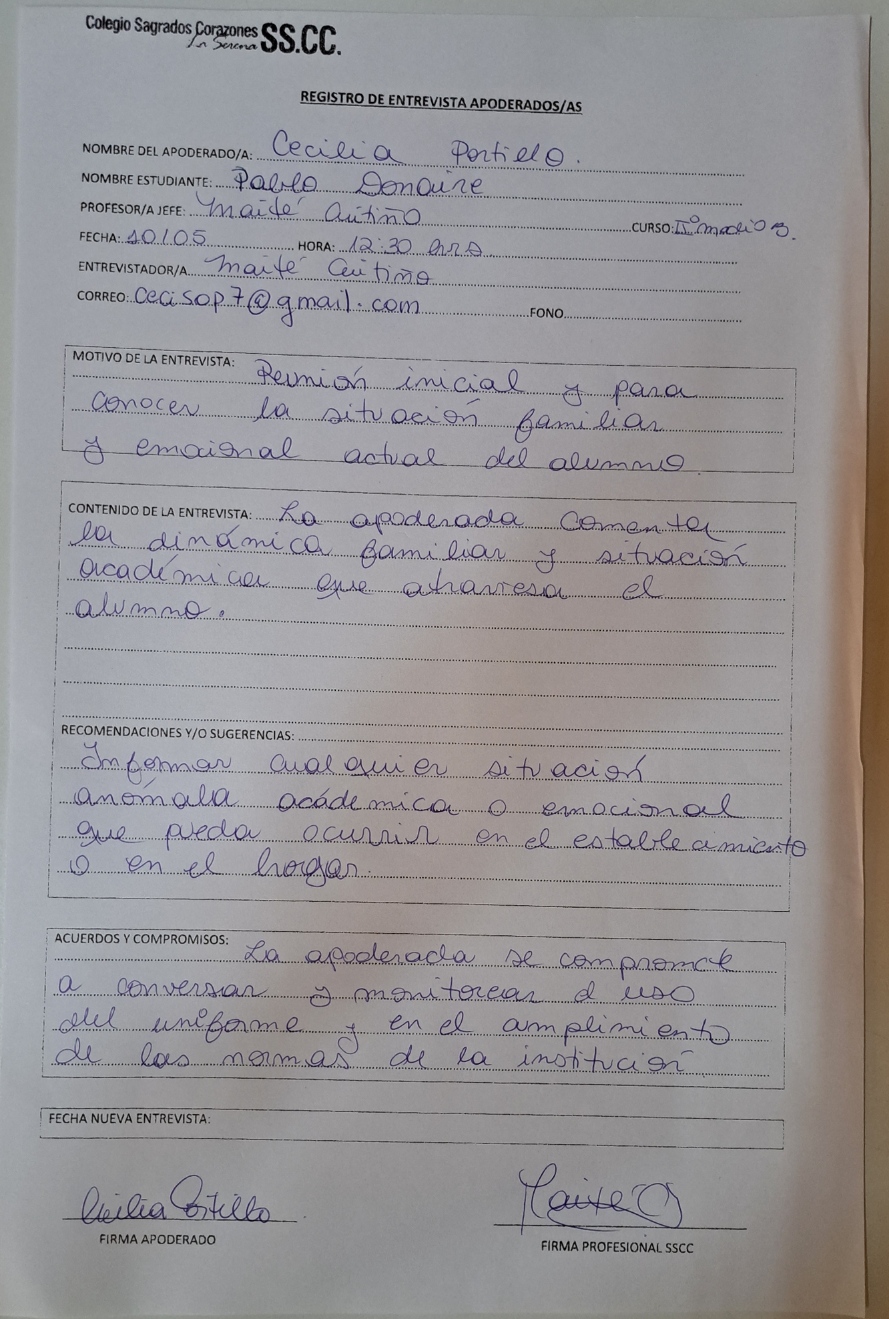 Colegio Sagrados Corazones SS.CC.
La Serena
REGISTRO DE ENTREVISTA APODERADOS/AS
NOMBRE DEL APODERADO/A: Cecilia Portillo.
NOMBRE ESTUDIANTE: Pablo Donaire
PROFESOR/A JEFE: Maité Cutiño CURSO: IIº medio B.
FECHA: 10/05 HORA: 12:30 hrs
ENTREVISTADOR/A Maité Cutiño
CORREO: cecisop7@gmail.com FONO
MOTIVO DE LA ENTREVISTA: Reunión inicial y para
conocer la situación familiar
y emocional actual del alumno.
CONTENIDO DE LA ENTREVISTA: La apoderada comenta
la dinámica familiar y situación
académica que atraviesa el
alumno.
RECOMENDACIONES Y/O SUGERENCIAS:
Informar cualquier situación
anómala académica o emocional
que pueda ocurrir en el establecimiento
o en el hogar.
ACUERDOS Y COMPROMISOS: La apoderada se compromete
a conversar y monitorear el uso
del uniforme y en el cumplimiento
de las normas de la institución
FECHA NUEVA ENTREVISTA:
Cecilia Portillo Maité C
FIRMA APODERADO FIRMA PROFESIONAL SSCC